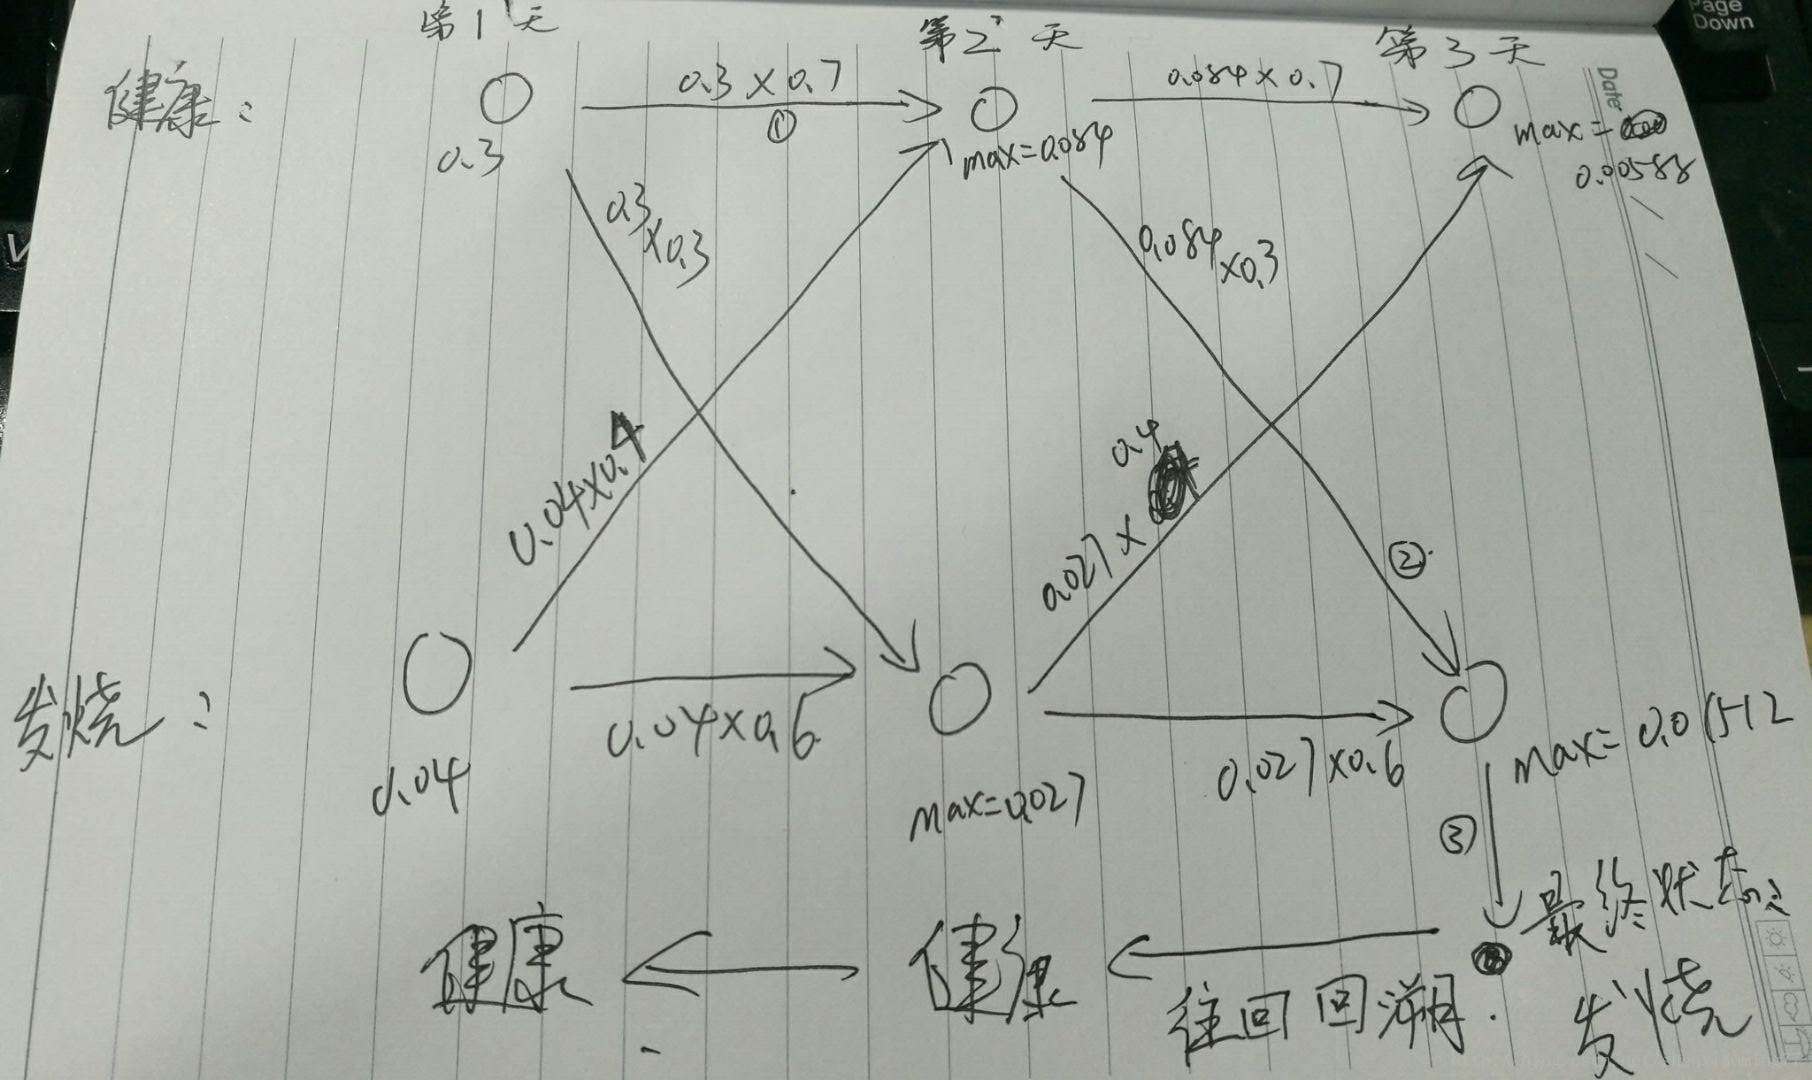 第1天 第2天 第3天
健康：
0.3
0.3×0.7
①
max=0.084
0.084×0.7
max=
0.00588
0.3
×0.3
0.084
×0.3
0.04×0.4
0.4
0.027×
②
发烧：
0.04
0.04×0.6
max=0.027
0.027×0.6
max=0.01512
③
最终状态：
发烧
往回回溯.
健康
健康
Date
Page
Down